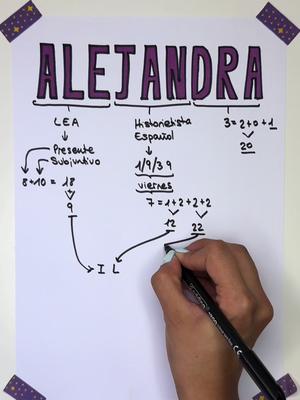 ALEJANDRA
LEA
Presente
Subjuntivo
8+10 = 18
9
Historietista
Español
1/9/39
viernes
7 = 1+2+2+2
12 22
3 = 2+0+1
20
I L